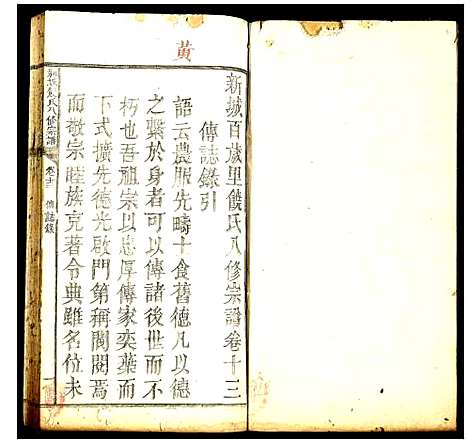 黃
新城百歲里饒氏八修宗譜卷十三
傳誌錄引
語云農服先疇士食舊德凡以德
之繫於身者可以傳諸後世而不
朽也吾祖宗以忠厚傳家奕葉而
下式擴先德光啟門第稱閥閱焉
而敬宗睦族克著令典雖名位未
氏八修宗譜
卷十三
傳誌錄